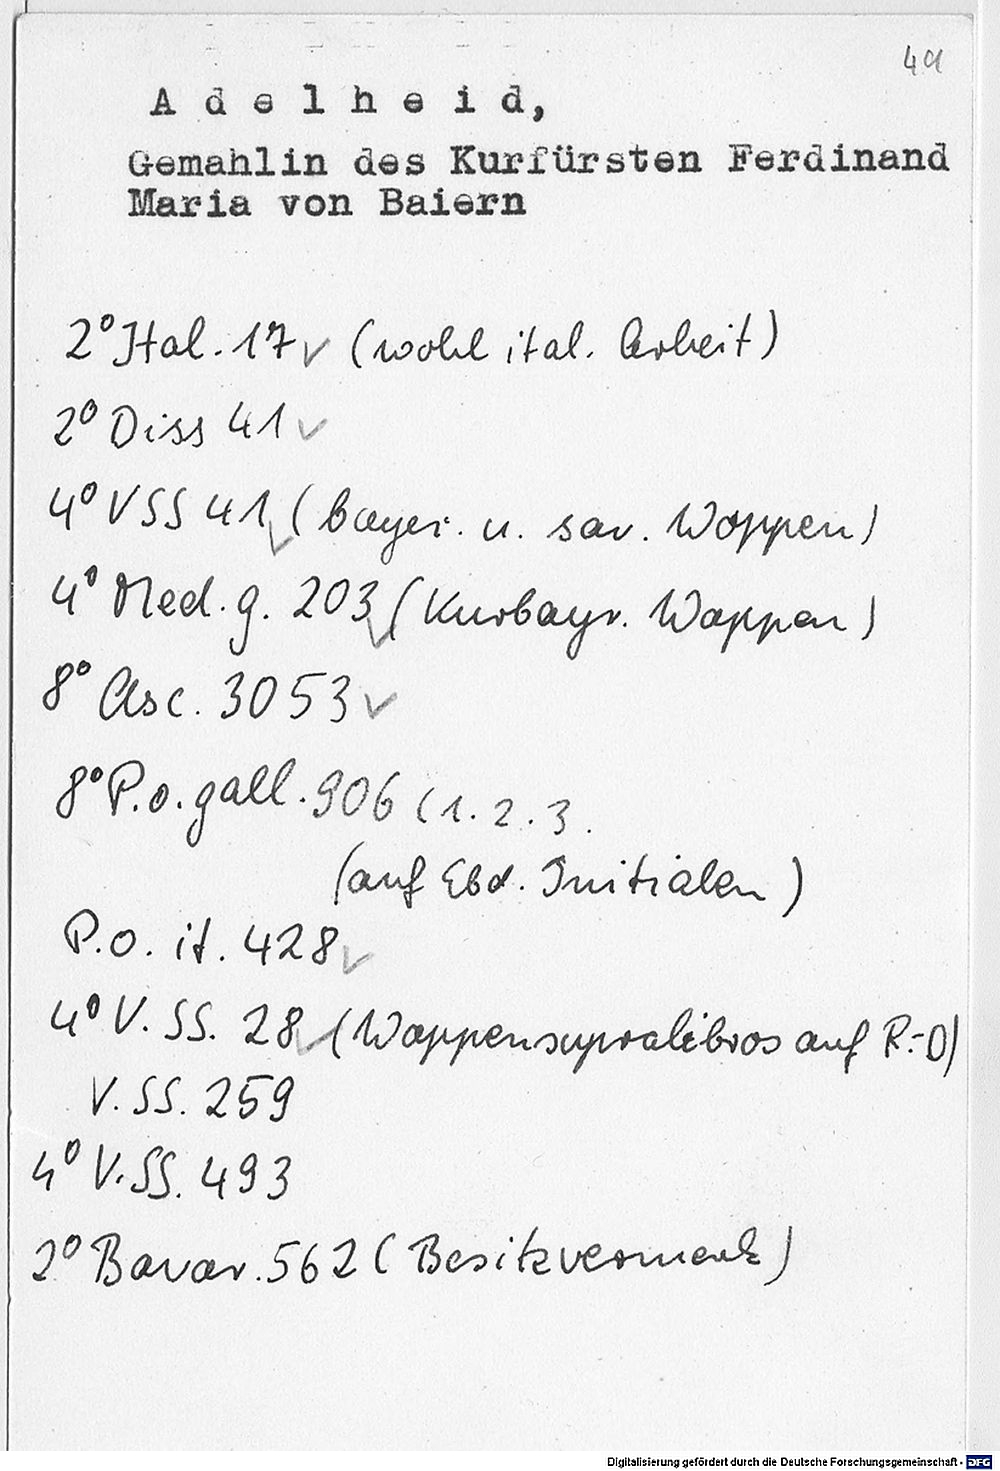 49
A d e l h e i d,
Gemahlin des Kurfürsten Ferdinand
Maria von Baiern
2° Ital. 17 ✓ (wohl ital. Arbeit)
2° Diss 41 ✓
4° VSS 41 ✓ (bayer. u. sav. Wappen)
4° Med. g. 203 ✓ (Kurbayr. Wappen)
8° Asc. 3053 ✓
8° P.o. gall. 906 (1. 2. 3.
(auf Ebd. Initialen)
P.o. it. 428 ✓
4° V. SS. 28 ✓ (Wappensupralibros auf R.-D)
V. SS. 259
4° V. SS. 493
2° Bavar. 562 (Besitzvermerk)
Digitalisierung gefördert durch die Deutsche Forschungsgemeinschaft - DFG